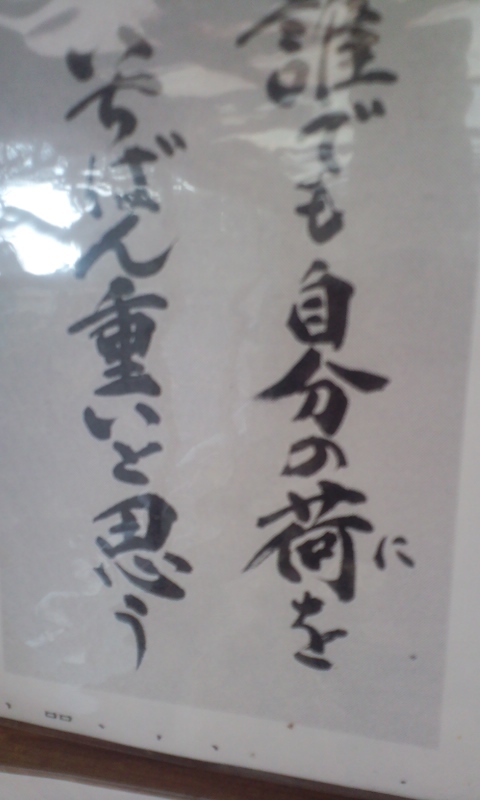 誰でも自分の荷を
に
いちばん重いと思う